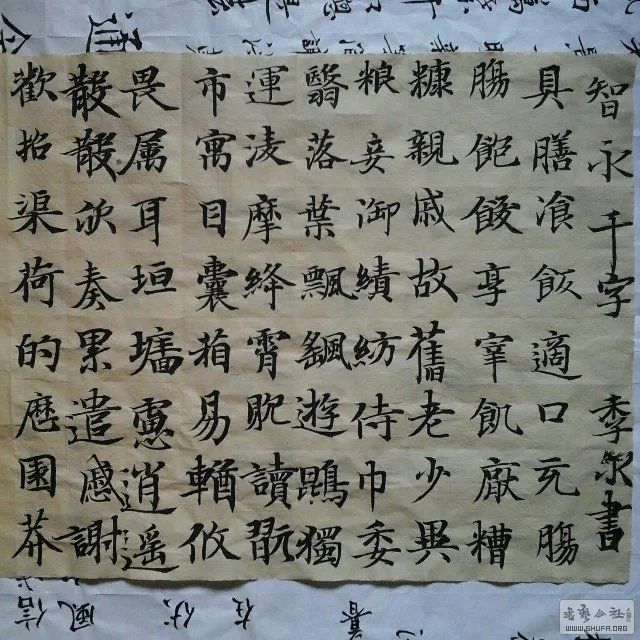 智永千字 書
具膳飡飯適口充膓
膓飽享宰飢厭糟
糠親戚故舊老少異
粮妾御績紡侍巾委
翳落葉飄颻遊鵾獨
運淩摩絳霄耽讀翫
市寓目囊箱易輶攸
畏属耳垣墻慮逍遥
散散欣奏累遣慼謝
歡招渠荷的歷園莽
WWW.SHUFA.ORG